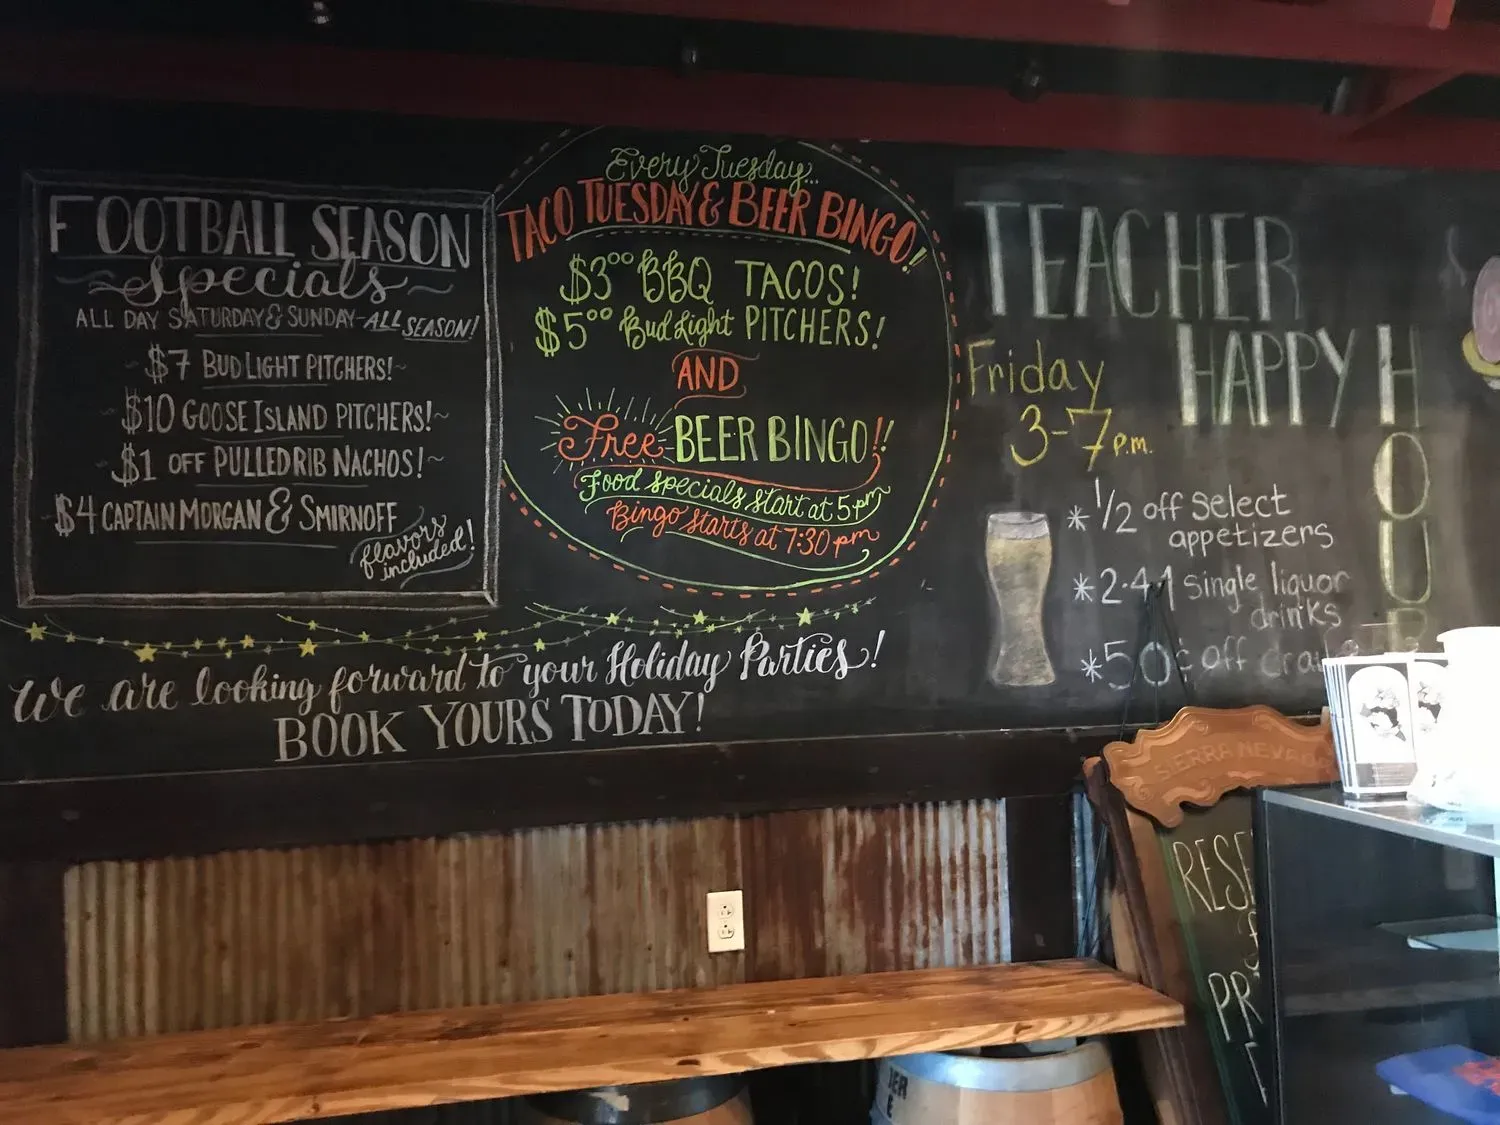 FOOTBALL SEASON
Specials
ALL DAY SATURDAY & SUNDAY-ALL SEASON!
$7 BUD LIGHT PITCHERS!
$10 GOOSE ISLAND PITCHERS!
$1 OFF PULLED RIB NACHOS!
$4 CAPTAIN MORGAN & SMIRNOFF
flavors
included!
Every Tuesday...
TACO TUESDAY & BEER BINGO!
$3⁰⁰ BBQ TACOS!
$5⁰⁰ Bud Light PITCHERS!
AND
Free BEER BINGO!!
Food specials start at 5pm
Bingo starts at 7:30 pm
We are looking forward to your Holiday Parties!
BOOK YOURS TODAY!
TEACHER
HAPPY HOUR
Friday
3-7 P.M.
* 1/2 off select
appetizers
* 2-4-1 single liquor
drinks
* 50¢ off
SIERRA NEVADA